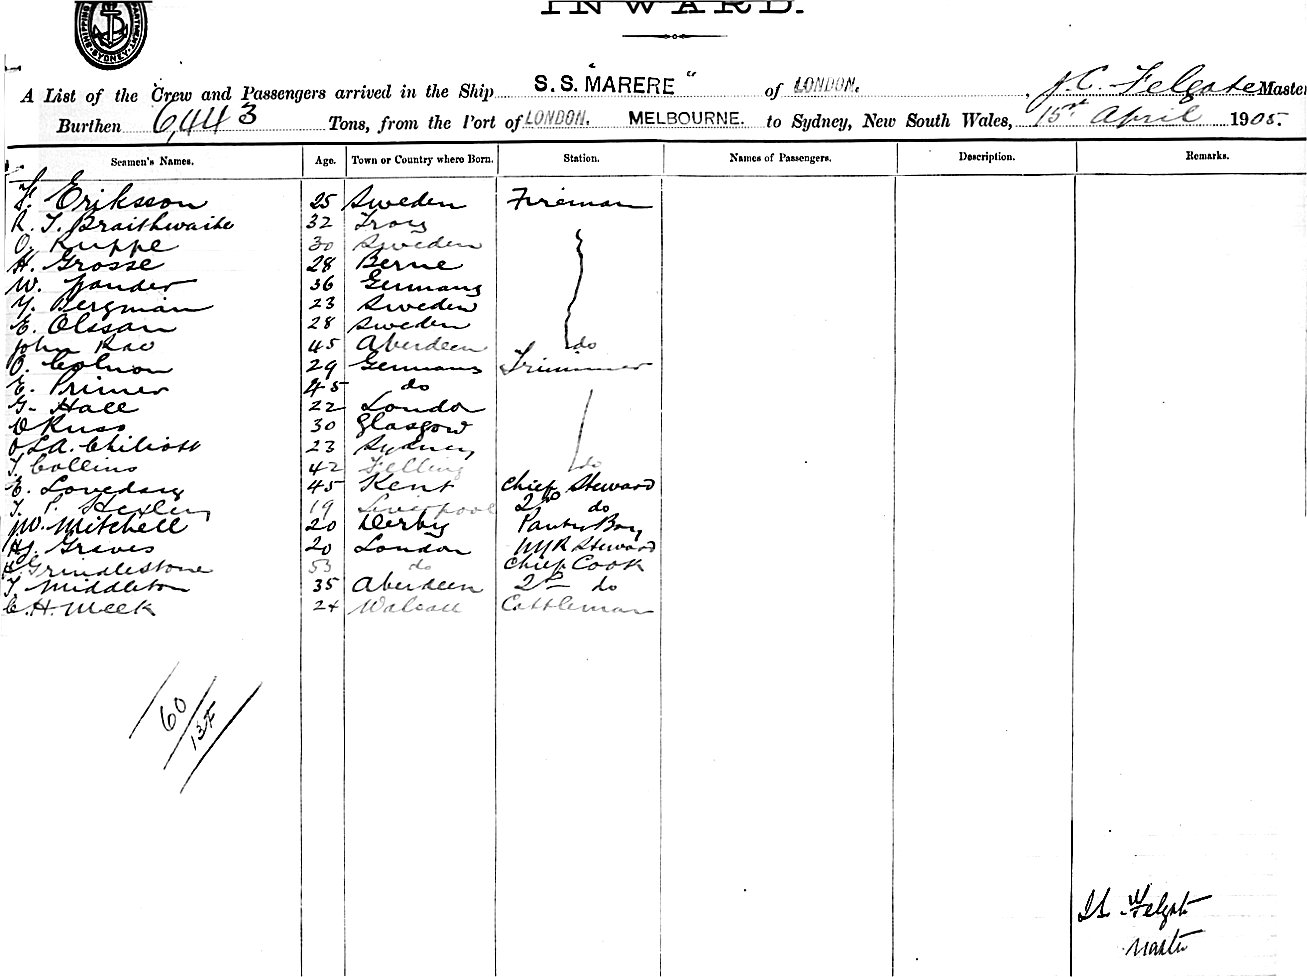 INWARD.
A List of the Crew and Passengers arrived in the Ship "S.S. MARERE" of LONDON. J.C. Felgate Master
Burthen 6,443 Tons, from the Port of LONDON. MELBOURNE. to Sydney, New South Wales, 15th April 1905.
Seamen's Names. Age. Town or Country where Born. Station. Names of Passengers. Description. Remarks.
F. Eriksson 25 Sweden Fireman
R. T. Braithwaite 32 Troy
O. Ruppe 30 Sweden
H. Grosse 28 Berne
W. 36 Germany
Y. Bergman 23 Sweden
E. Olsson 28 Sweden
John Rae 45 Aberdeen do
O. 29 Germany Trimmer
E. Primer 45 do
G. Hall 22 London
Russ 30 Glasgow
L.A. Chilcott 23 Sydney
T. Collins 42 Felling do
E. Loveday 45 Kent Chief Steward
T. P. 19 Liverpool 2nd do
J.W. Mitchell 20 Derby Pantry Boy
H.J. Graves 20 London M/R Steward
Grindlestone 53 do Chief Cook
T. Middleton 35 Aberdeen 2nd do
C. H. Meek 24 Walsall Cattleman
60
J.C. Felgate
Master